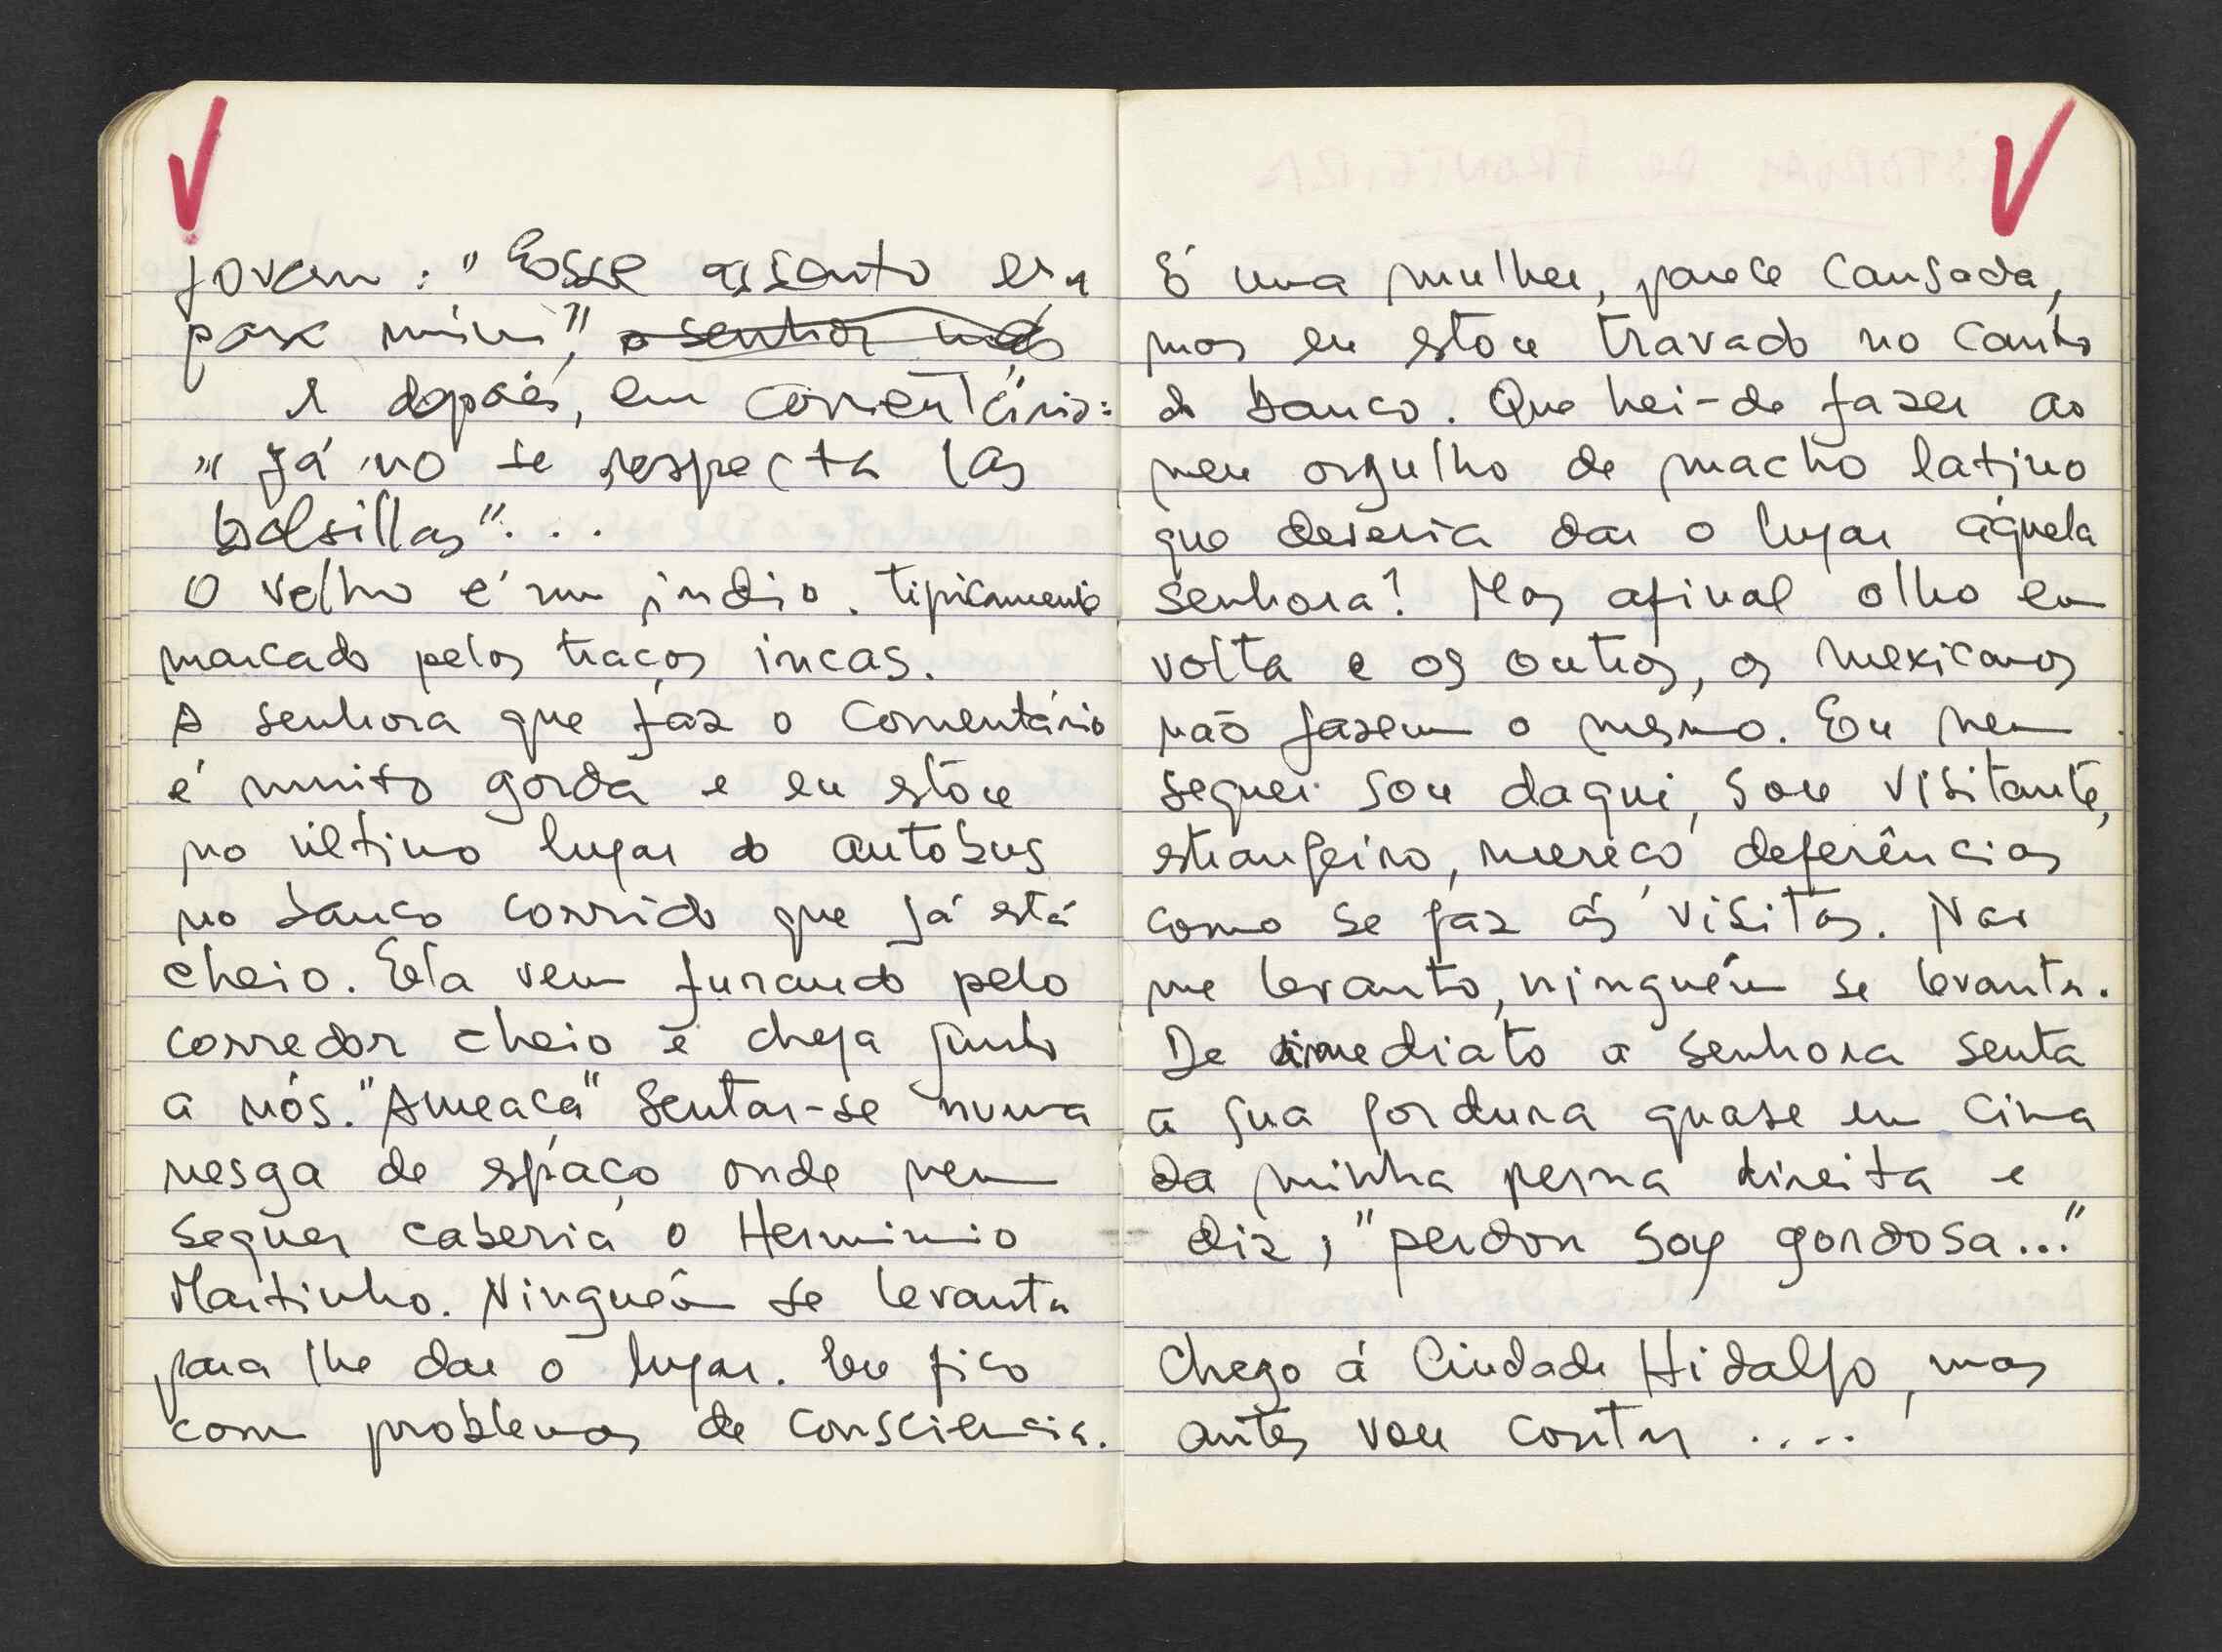 jovem: "Esse assento era
para mim", o senhor não
e depois, em comentário:
"Já no se respecta las
bolsillas"...
O velho é um índio. tipicamente
marcado pelos traços incas.
A senhora que faz o comentário
é muito gorda e eu estou
no último lugar do autobus
no banco corrido que já está
cheio. Ela vem furando pelo
corredor cheio e chega junto
a nós. "Ameaça" sentar-se numa
nesga de espaço onde nem
sequer caberia o Herminio
Martinho. Ninguém se levanta
para lhe dar o lugar. Eu fico
com problemas de consciência.
É uma mulher, parece cansada,
mas eu estou travado no canto
do banco. Que hei-de fazer ao
meu orgulho de macho latino
que deveria dar o lugar àquela
senhora? Mas afinal olho em
volta e os outros, os mexicanos
não fazem o mesmo. Eu nem
sequer sou daqui, sou visitante,
estrangeiro, mereço deferências
como se faz ás visitas. Não
me levanto, ninguém se levanta.
De imediato a senhora senta
a sua gordura quase em cima
da minha perna direita e
diz; "perdon soy gordosa..."
Chego á Ciudade Hidalgo, mas
antes vou contar ....